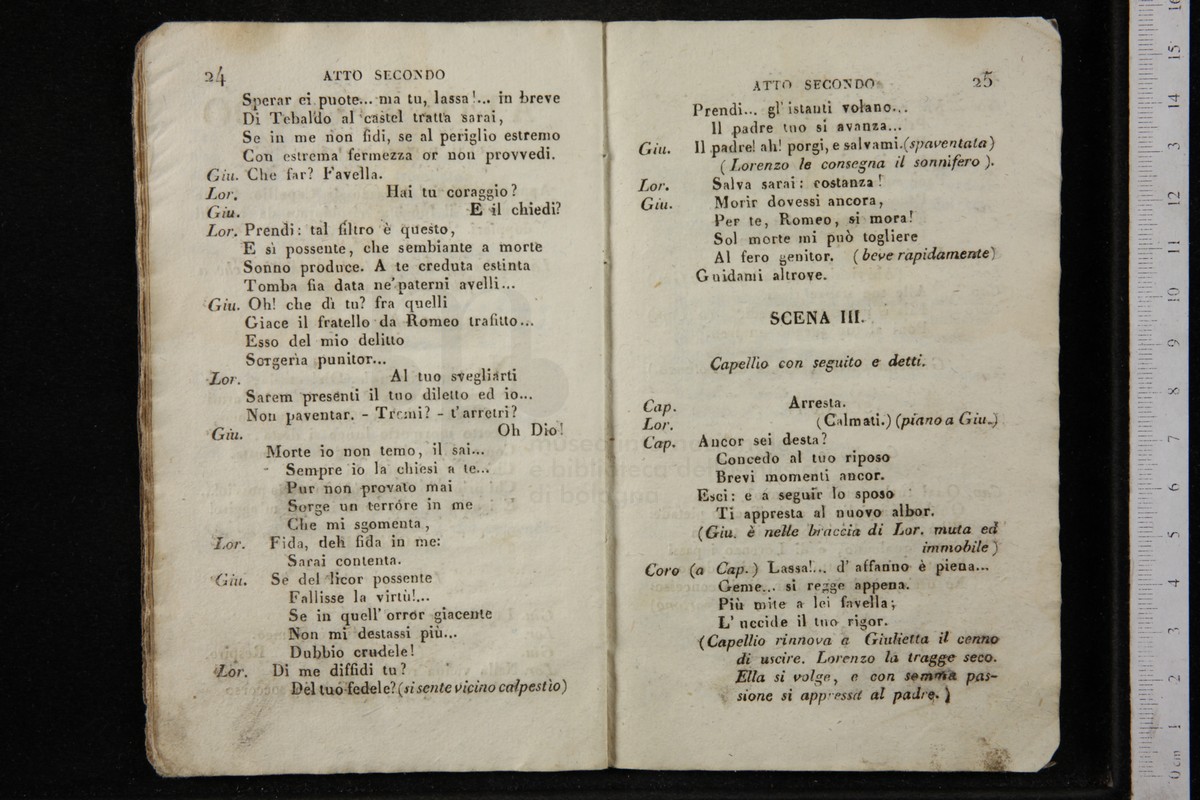 24 ATTO SECONDO
Sperar ci puote... ma tu, lassa!... in breve
Di Tebaldo al castel tratta sarai,
Se in me non fidi, se al periglio estremo
Con estrema fermezza or non provvedi.
Giu. Che far? Favella.
Lor. Hai tu coraggio?
Giu. E il chiedi?
Lor. Prendi: tal filtro è questo,
E sì possente, che sembiante a morte
Sonno produce. A te creduta estinta
Tomba fia data ne' paterni avelli...
Giu. Oh! che dì tu? fra quelli
Giace il fratello da Romeo trafitto...
Esso del mio delitto
Sorgerìa punitor...
Lor. Al tuo svegliarti
Sarem presenti il tuo diletto ed io...
Non paventar. - Tremi? - t'arretri?
Giu. Oh Dio!
Morte io non temo, il sai...
- Sempre io la chiesi a te...
Pur non provato mai
Sorge un terrore in me
Che mi sgomenta,
Lor. Fida, deh fida in me:
Sarai contenta.
Giu. Se del licor possente
Fallisse la virtù!...
Se in quell' orror giacente
Non mi destassi più...
Dubbio crudele!
Lor. Di me diffidi tu?
Del tuo fedele? (si sente vicino calpestìo)
ATTO SECONDO 25
Prendi... gl' istanti volano...
Il padre tuo si avanza...
Giu. Il padre! ah! porgi, e salvami. (spaventata)
(Lorenzo le consegna il sonnifero).
Lor. Salva sarai: costanza!
Giu. Morir dovessi ancora,
Per te, Romeo, si mora!
Sol morte mi può togliere
Al fero genitor. (beve rapidamente)
Guidami altrove.
SCENA III.
Capellio con seguito e detti.
Cap. Arresta.
Lor. (Calmati.) (piano a Giu.)
Cap. Ancor sei desta?
Concedo al tuo riposo
Brevi momenti ancor.
Esci: e a seguir lo sposo
Ti appresta al nuovo albor.
(Giu. è nelle braccia di Lor. muta ed
immobile)
Coro (a Cap.) Lassa!... d' affanno è piena...
Geme... si regge appena.
Più mite a lei favella;
L' uccide il tuo rigor.
(Capellio rinnova a Giulietta il cenno
di uscire. Lorenzo la tragge seco.
Ella si volge, e con somma pas-
sione si appressa al padre.)
museo
e biblioteca
di bologna
0 cm 1 2 3 4 5 6 7 8 9 10 11 12 13 14 15 16